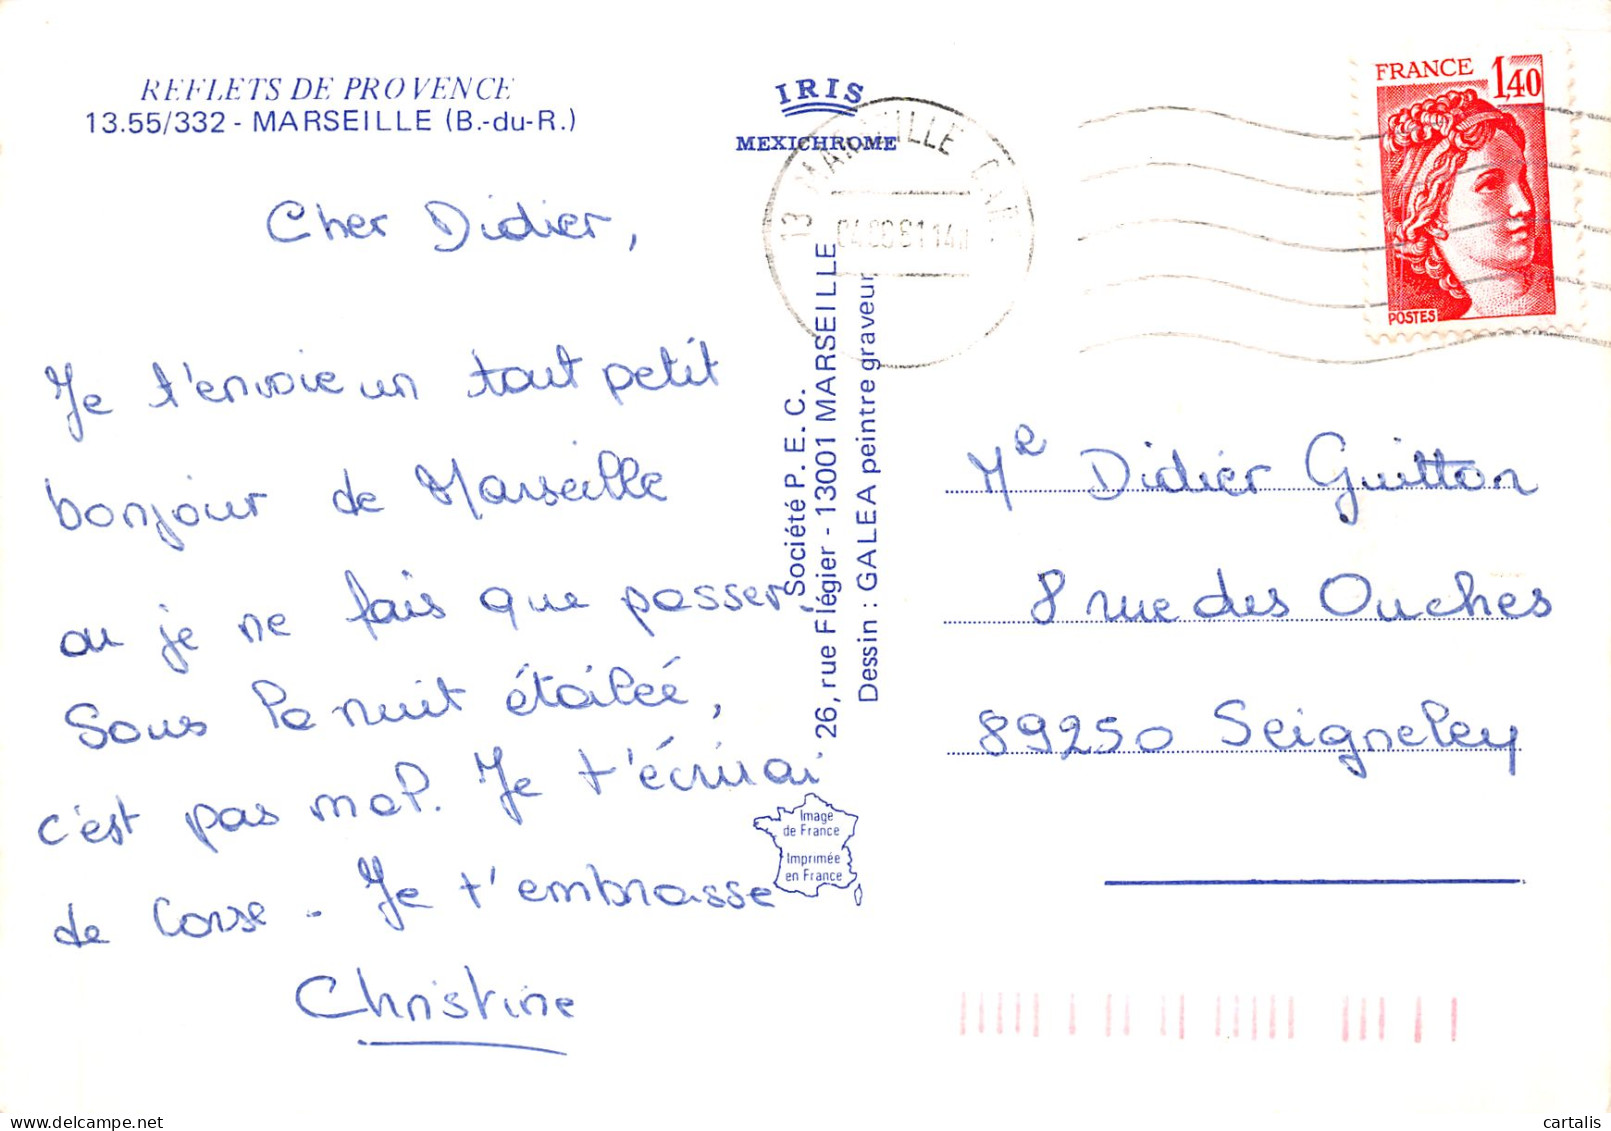 REFLETS DE PROVENCE
13.55/332 - MARSEILLE (B.-du-R.)
IRIS
MEXICHROME
13 MARSEILLE
FRANCE 1,40
POSTES
Cher Didier,
Je t'envoie un tout petit
bonjour de Marseille
ou je ne fais que passer.
Sous la nuit étoilée,
c'est pas mal. Je t'écrirai
de Corse - Je t'embrasse
Christine
Société P. E. C.
26, rue Flégier - 13001 MARSEILLE
Dessin : GALEA peintre graveur
Image
de France
Imprimée
en France
Mr Didier Guitton
8 rue des Ouches
89250 Seigneley
cartalis